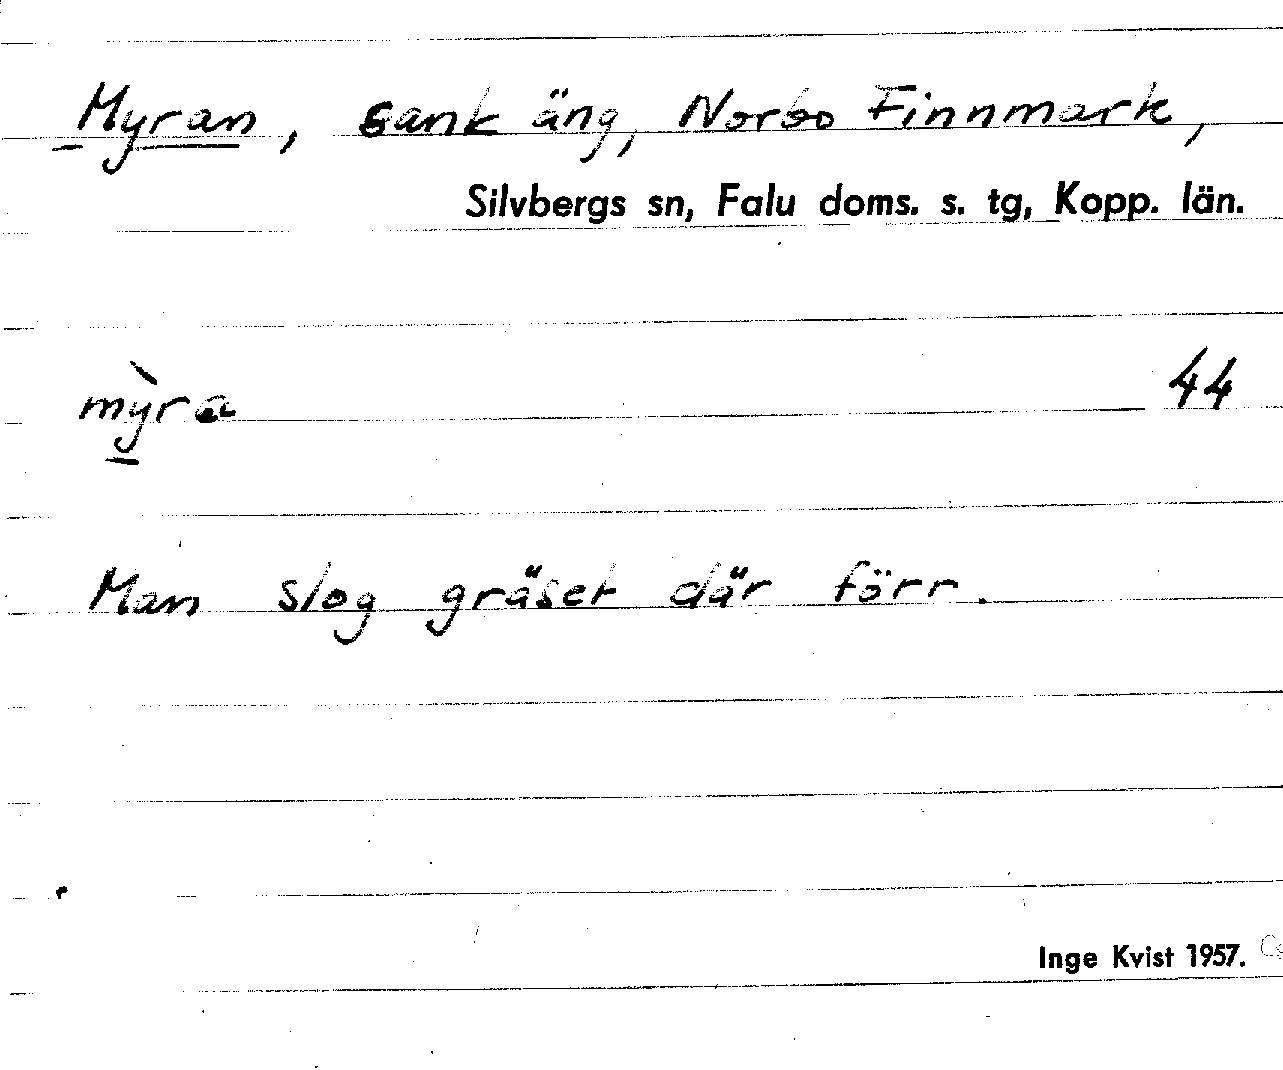 Myran, sank äng, Norbo Finnmark,
Silvbergs sn, Falu doms. s. tg, Kopp. län.
mỳra 44
Man slog gräset där förr.
Inge Kvist 1957.